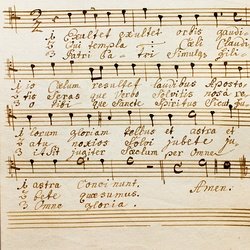 1 Exultet exultet orbis gaudi,
2 Qui templa Cæli Claudi
3 Patri Patri Simulq; fili
1 io Cælum resultet laudibus Aposto,
2 tis Seras que Verbo Solvitis nos a re
3 o Tibi que Sancte Spiritus Sicut fu
1 lorum gloriam tellus et astra et
2 atu noxios Solvi jubete ju,
3 it Sit jugiter Sæclum per Omne
1 astra Concinunt. Amen.
2 bete quæsumus.
3 Omne gloria.